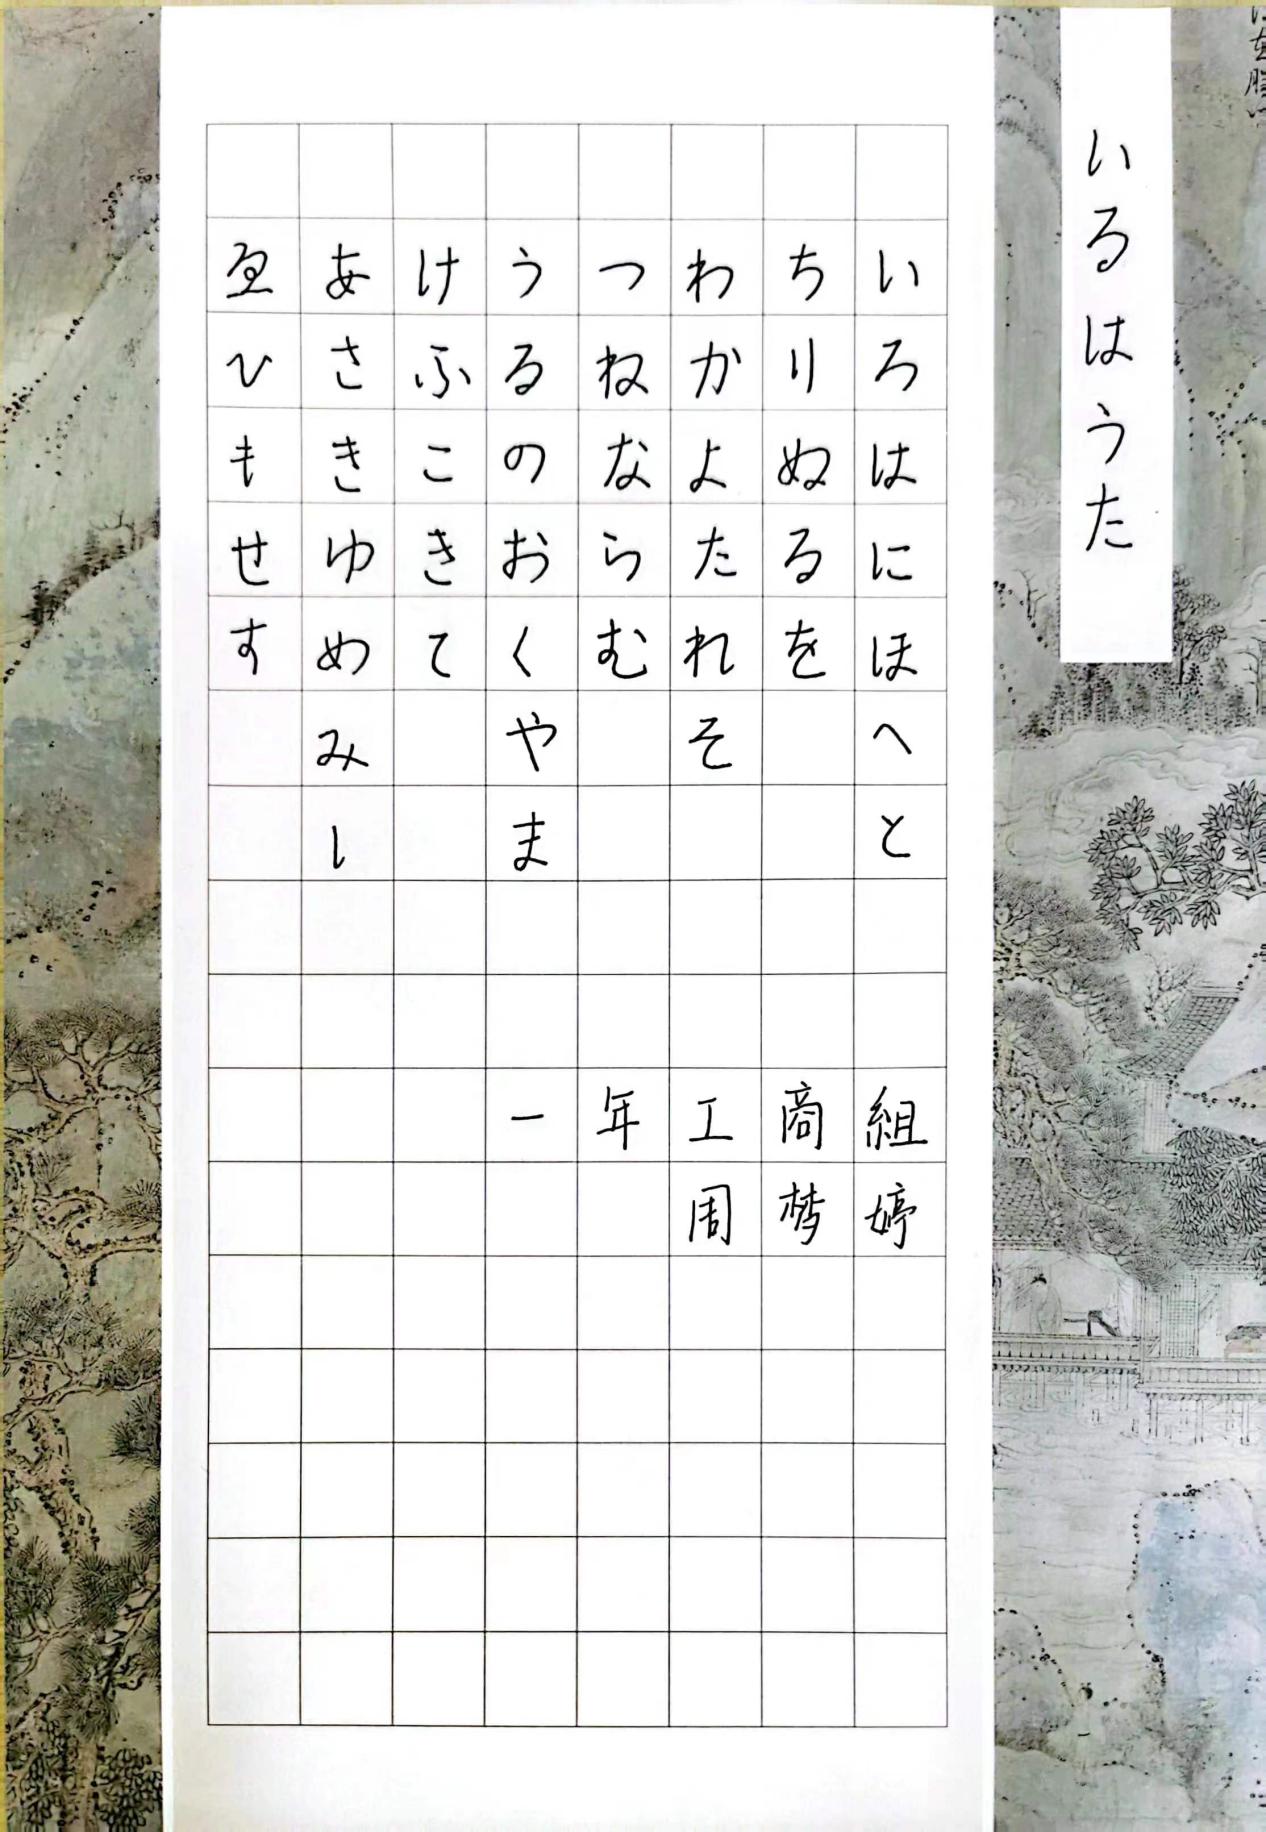 いるはうた
いろはにほへと
ちりぬるを
わかよたれそ
つねならむ
うるのおくやま
けふこきて
あさきゆめみし
ゑひもせす
一年工商組
周梦婷